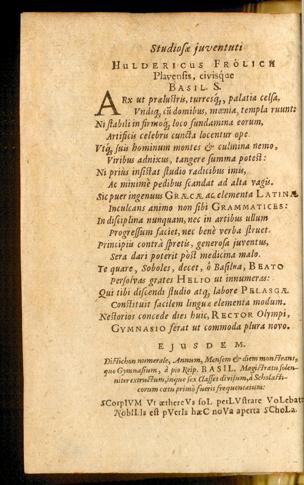 Studiosæ juventuti
HULDERICUS FRÒLICH
Plavensis, civisque
BASIL. S.
ARx ut prælustris, turresq́, palatia celsa,
Vndiq, cũ domibus, mœnia, templa ruunt:
Ni stabili in firmoq́ loco fundamina eorum,
Artificis celebru cuncta locentur ope.
Vtq́, suis hominum montes & culmina nemo,
Viribus adnixus, tangere summa potest:
Ni prius insistat studio radicibus imis,
Ac minimè pedibus scandat ad alta vagis.
Sic puer ingenuus GRÆCÆ ac elementa LATINÆ
Inculcans animo non sibi GRAMMATICES:
In disciplina nunquam, nec in artibus ullum
Progressum faciet, nec benè verba struet.
Principiis contrà spretis, generosa juventus,
Sera dari poterit pòst medicina malo.
Te quare, Soboles, decet, ô Basilna, BEATO
Persolvas grates HELIO ut innumeras:
Qui tibi discendi studio atq, labore PELASGÆ
Constituit facilem lingua elementa modum.
Nestorios concede dies huic, RECTOR Olympi,
GYMNASIO ferat ut commoda plura novo.
EJUSDEM.
Distichon numerale, Annum, Mensem & diem monstrans,
quo Gymnasium, à pio Reip. BASIL. Magistratu solen-
niter extructum, inque sex Classes divisum, à Scholasti-
corum cœtu primò fuerit frequentatum:
sCorpIVM Vt æthereVs soL perLVstrare VoLebat
NobILIs est pVerIs hæC noVa aperta sChoLa.